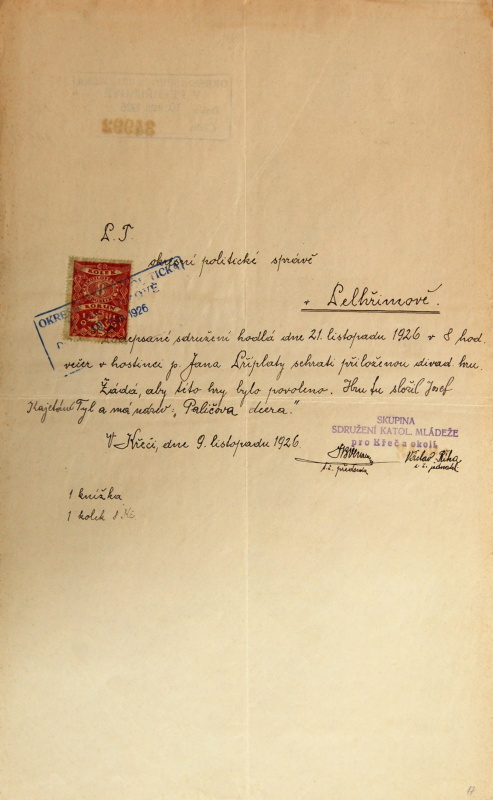 P. T.
okresní politické správě
v Pelhřimově.
epsané sdružení hodlá dne 21. listopadu 1926 v 8 hod.
večer v hostinci p. Jana Příplaty sehrati přiloženou divad. hru.
Žádá, aby této hry bylo povoleno. Hru tu složil Josef
Kajetán Tyl a má název: „Paličova dcera."
V Křeči, dne 9. listopadu 1926.
SKUPINA
SDRUŽENÍ KATOL. MLÁDEŽE
pro Křeč a okolí.
t. č. předseda
Václav Říha,
t. č. jednatel
1 knížka
1 kolek 8 Kč
KOLEK
8
KORUN
OKRES
POLITICKÁ
1926
34992
17